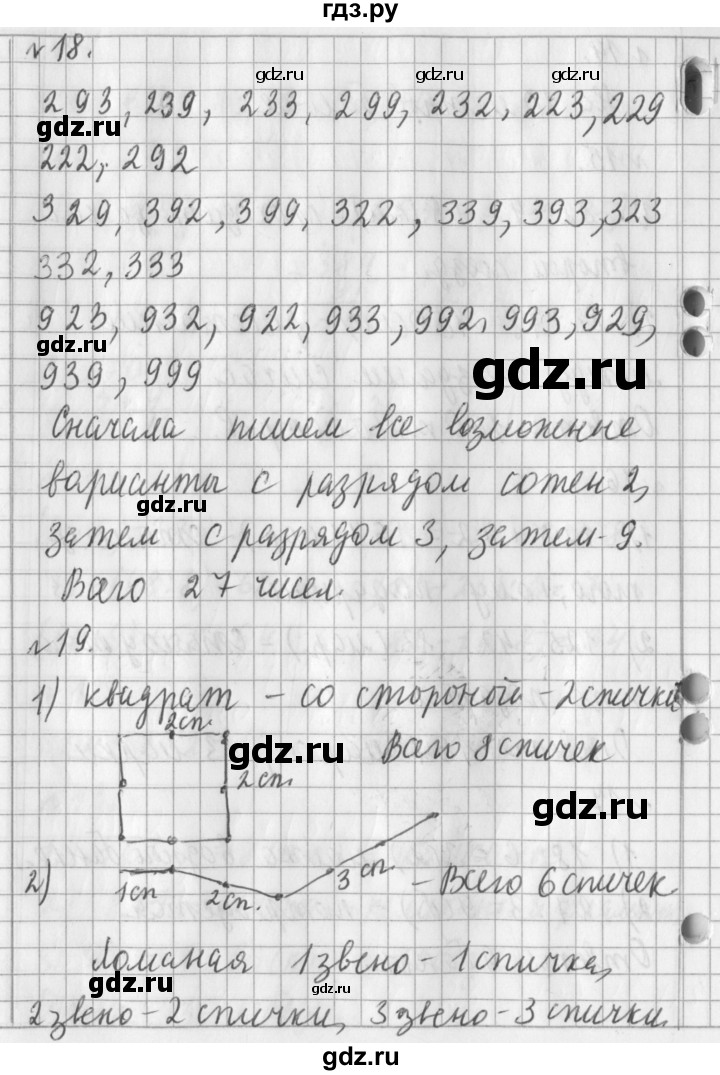 гдз.ру
№18.
gdz.ru gdz.ru gdz.ru
293, 239, 233, 299, 232, 223, 229
gdz.ru
222, 292
329, 392, 399, 322, 339, 393, 323
332, 333
923, 932, 922, 933, 992, 993, 929,
gdz.ru
939, 999
gdz.ru
Сначала пишем все возможные
варианты с разрядом сотен 2,
gdz.ru
затем с разрядом 3, затем - 9.
Всего 27 чисел.
№19.
1) квадрат - со стороной - 2 спички
2сп.
gdz.ru
Всего 8 спичек
2сп.
gdz.ru
2) 1сп 2сп. 3 сп. - Всего 6 спичек
Ломаная 1звено - 1 спичка,
gdz.ru gdz.ru
2 звено - 2 спички, 3 звено - 3 спички.
gdz.ru